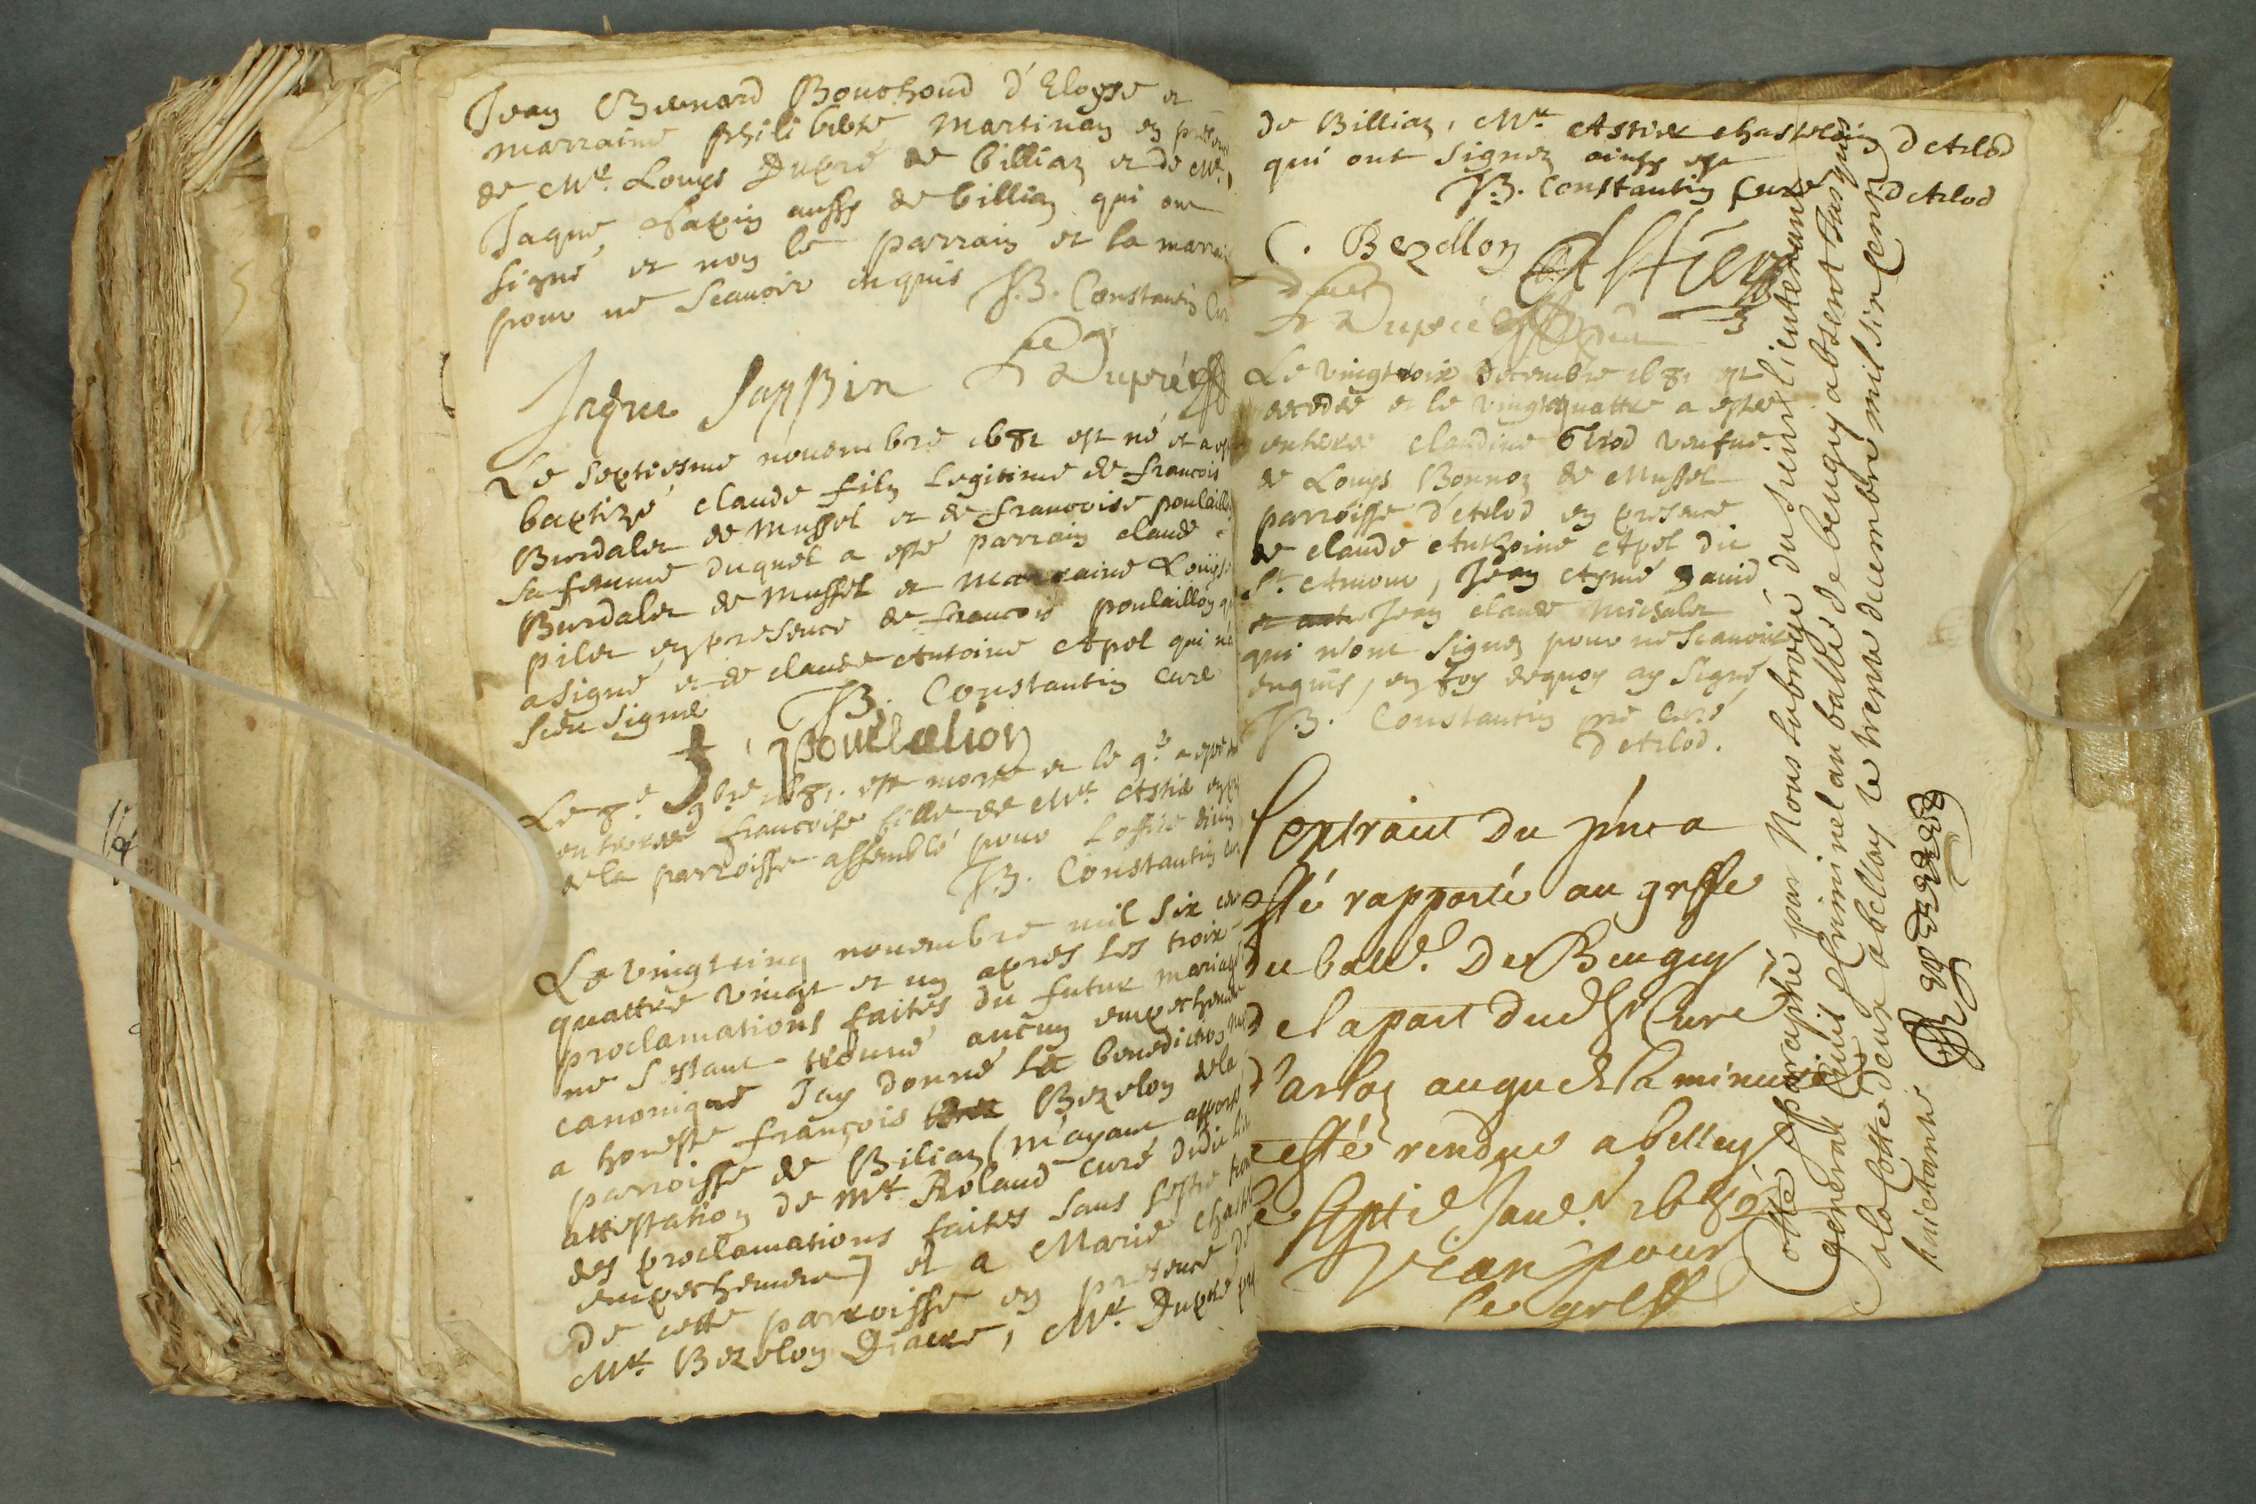 Jean Bernard Bouchoud d'Eloyse et
marraine philiberte martinan en
de Mre. Louys Dupré de billiaz et de Mre.
Jaque Sapin aussy de billiaz qui ont
signé et non le parrain et la
pour ne scauoir enquis J.B. Constantin
Jaque Sappin L Dupré
Le septiesme nouembre 1681 est né et a
baptizé claude filz legitime de francois
Burdalet de Mussel et de francoise
sa femme duquel a esté parrain claude
Burdalet de Mussel et Marraine Louyse
pilet en presence de francois poulaillon
a signé et de claude Antoine Apel qui
sceu signer J.B. Constantin Curé
f. poulalion
Le 8.e 9bre 1681. est morte et le 9.e a
enterree francoise fille de Mre Astier
de la parroisse assemblé pour L'office
J.B. Constantin
Le vingtcinq nouembre mil six
quattre vingt et un apres les troix
proclamations faites du futur
ne s'estant trouué aucun
canonique Jay donné la
a honeste francois Bezelon de la
parroisse de Biliaz (m'ayant
attestation de Mre Roland curé dudit
des proclamations faites sans
empechement) et a Marie
de cette parroisse en presence de
Mre Bezelon Diacre, Mre. Dupré
de Billiaz, Mre Astier chastelain d'Arlod
qui ont signez ainsy est
J.B. Constantin Curé d'Arlod
C. Bezellon Astier
L Dupré
Le vingtroix decembre 1681 est
decedée et le vingtquattre a estée
enterée claudine Griod veufue
de Louys Bonnoz de Mussel
parroisse d'Arlod en presence
de claude Anthoine Apel du
St. Amour, Jean Aymé Dauid
Jean claude Michalet
qui n'ont signez pour ne scauoir
enquis, en foy dequoy ay signé
J.B. Constantin pre curé
d'Arlod.
L'extraict du pnt a
esté rapporté au greffe
du ball.e De Beugey
de la part dud Sr Curé
d'arloz auquel la minutte
a esté rendue a belley
le sept.e Janu.r 1682
pour
le greff
Cotté et paraphé par Nous subrogé du sieur lieutenant
general ciuil & criminel au balliage de beugey absent Jusques
a la cotte deux a belley le trente decembre mil six cent
huictante.